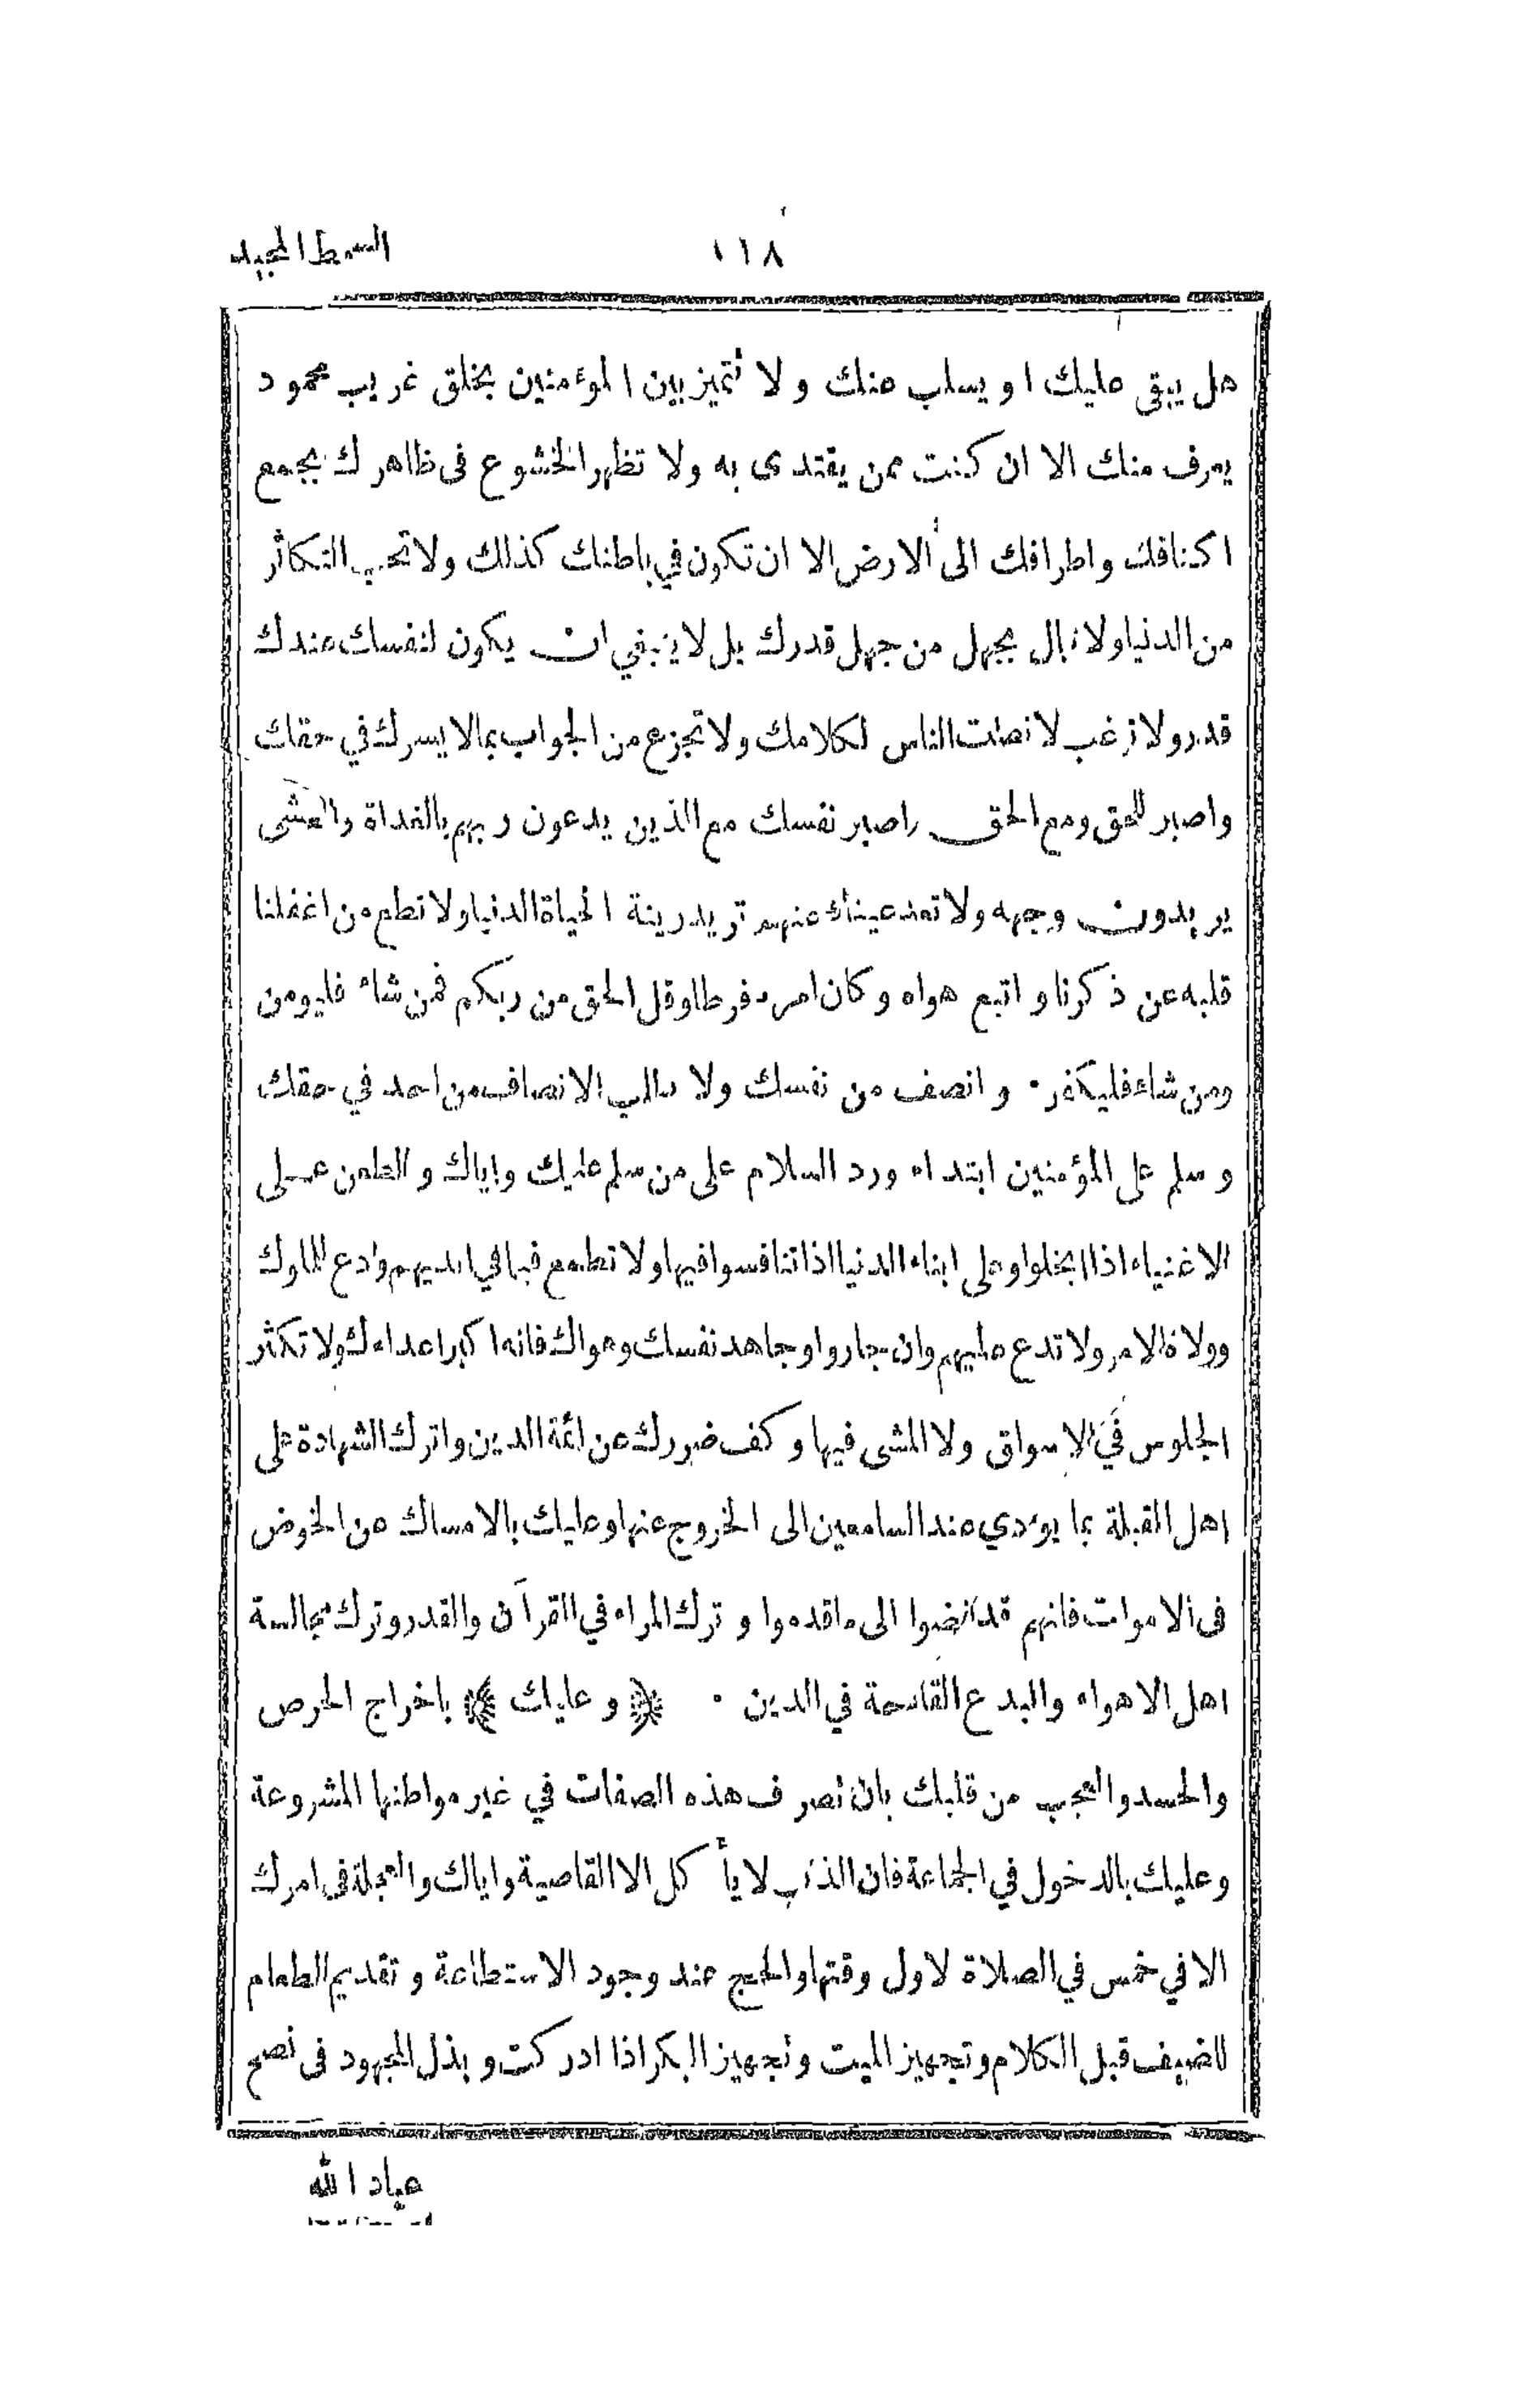 السمط المجيد
١١٨
هل يبقى عليك او يسلب عنك ولا تتميز بين المؤمنين بخلق غريب محمود
يعرف منك الا ان كنت ممن يقتدى به ولا تظهر الخشوع فى ظاهرك بجمع
اكنافك واطرافك الى الارض الا ان تكون في باطنك كذلك ولا تحب التكاثر
من الدنيا ولا تبال بجهل من جهل قدرك بل لا ينبغي ان يكون لنفسك عندك
قدر ولا ترغب لانصات الناس لكلامك ولا تجزع من الجواب بما لا يسرك في حقك
واصبر للحق ومع الحق واصبر نفسك مع الذين يدعون ربهم بالغداة والعشى
يريدون وجهه ولا تعد عيناك عنهم تريد زينة الحياة الدنيا ولا تطع من اغفلنا
قلبه عن ذكرنا واتبع هواه وكان امره فرطا وقل الحق من ربكم فمن شاء فليومن
ومن شاء فليكفر · وانصف من نفسك ولا تطلب الانصاف من احد في حقك
وسلم على المؤمنين ابتداء ورد السلام على من سلم عليك واياك والطعن على
الاغنياء اذا بخلوا وعلى ابناء الدنيا اذا تنافسوا فيها ولا تطمع فيما في ايديهم وادع للملوك
وولاة الامر ولا تدع عليهم وان جاروا وجاهد نفسك وهواك فانه اكبر اعداءك ولا تكثر
الجلوس في الاسواق ولا المشى فيها وكف ضررك عن ائمة الدين واترك الشهادة على
اهل القبلة بما يؤدي عند السامعين الى الخروج عنها وعليك بالامساك عن الخوض
فى الاموات فانهم قد افضوا الى ما قدموا وترك المراء في القرآن والقدر وترك مجالسة
اهل الاهواء والبدع القادحة في الدين · ﴿ وعليك ﴾ باخراج الحرص
والحسد والعجب من قلبك بان تصرف هذه الصفات في غير مواطنها المشروعة
وعليك بالدخول في الجماعة فان الذئب لا يأكل الا القاصية واياك والعجلة فى امرك
الا في خمس في الصلاة لاول وقتها والحج عند وجود الاستطاعة وتقديم الطعام
للضيف قبل الكلام وتجهيز الميت وتجهيز البكر اذا ادركت وبذل المجهود فى نصح
عباد الله